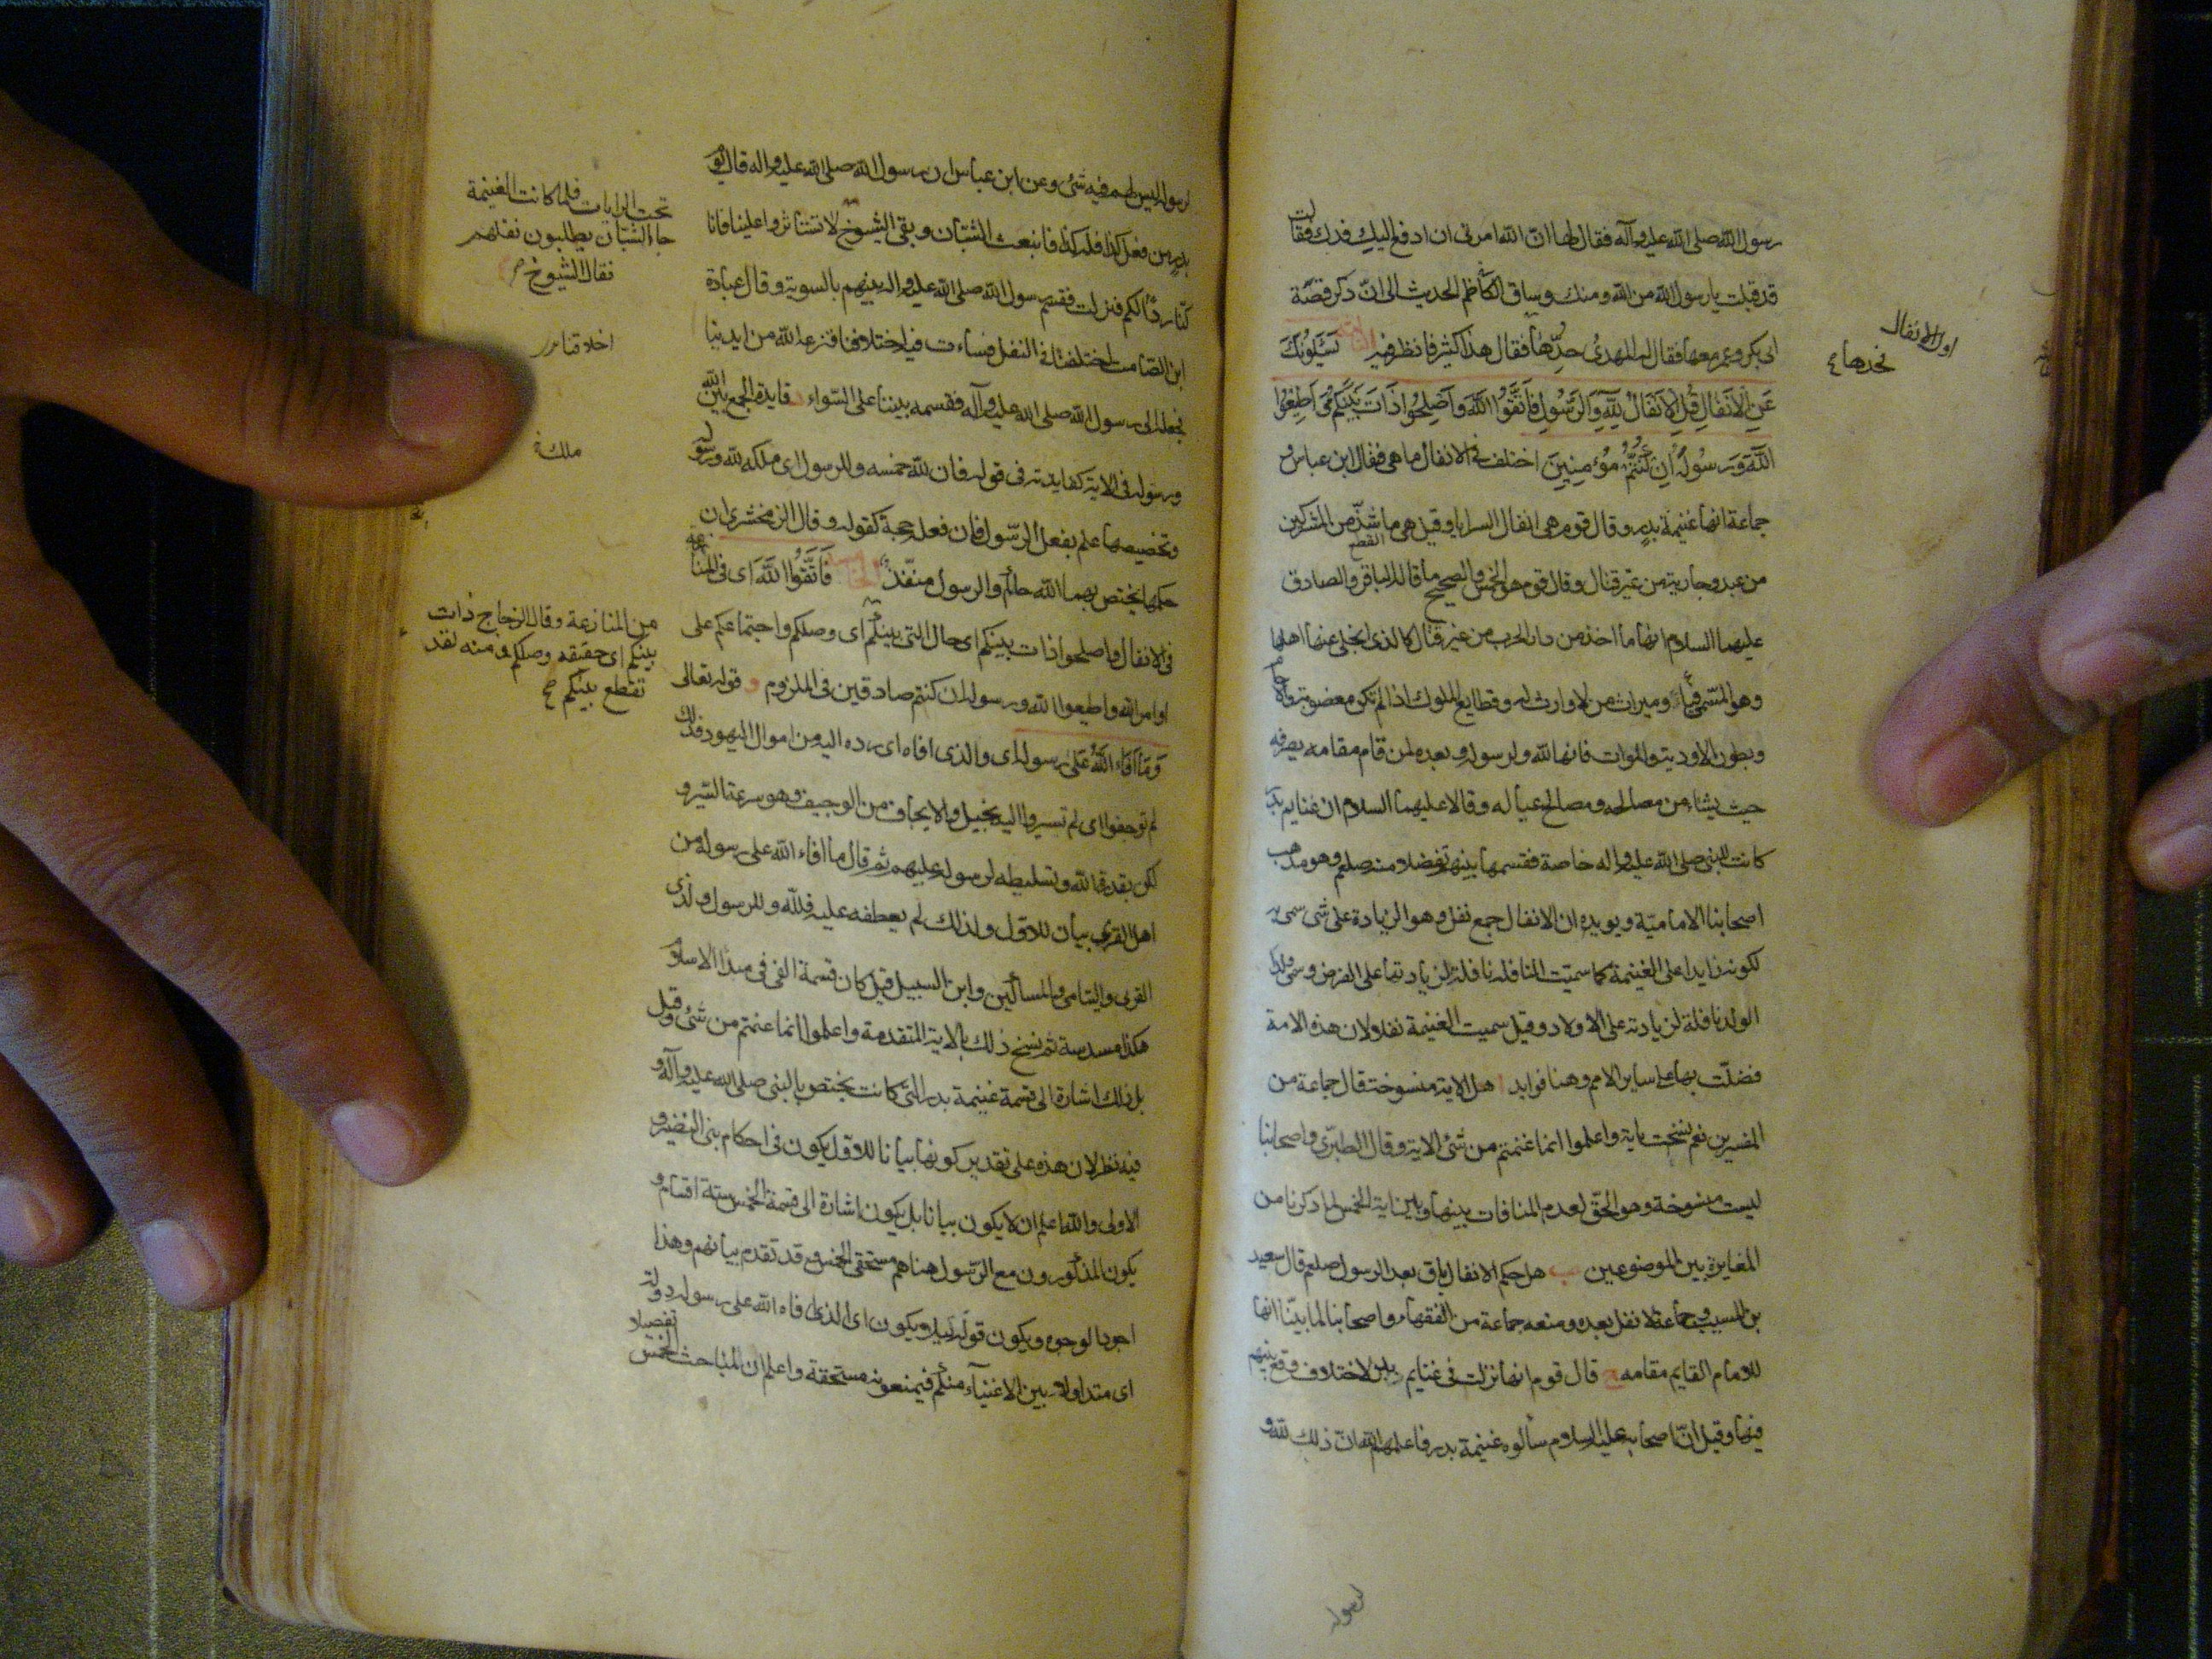 رسول الله صلى الله عليه وآله فقال لها ان الله امرنى ان ادفع اليك فدك فقالت
قد قبلت يا رسول الله من الله ومنك وساق الكاظم الحديث الى ان ذكر قصّة
ابى بكر وعمر معها فقال له المهدى حدّها فقال هذا كثير فانظر فيه يَسْئَلُونَكَ
عَنِ الْاَنْفَالِ قُلِ الْاَنْفَالُ لِلَّهِ وَالرَّسُولِ فَاتَّقُوا اللَّهَ وَاَصْلِحُوا ذَاتَ بَيْنِكُمْ وَ اَطِيعُوا
اللَّهَ وَرَسُولَهُ اِنْ كُنْتُمْ مُؤْمِنِينَ اختلف فى الانفال ما هى فقال ابن عباس و
جماعة انها غنيمة بدر وقال قوم هى انفال السرايا وقيل هى ما شذّ من المشركين
من عبد وجارية من غير قتال وقال قوم هو الخمس والصحيح ما قاله الباقر والصادق
عليهما السلام انها ما اخذ من دار الحرب من غير قتال كالذى انجلى عنها اهلها
وهو المسمى فيئا وميراث من لا وارث له وقطايع الملوك اذا لم تكن مغصوبة والاجام
وبطون الاودية والموات فانها لله ولرسوله وبعده لمن قام مقامه يصرفه
حيث يشاء من مصالحه ومصالح عياله وقالا عليهما السلام ان غنايم بدر
كانت للنبى صلى الله عليه واله خاصة فقسمها بينهم تفضلا منه صلعم وهو مذهب
اصحابنا الامامية ويويده ان الانفال جمع نفل وهو الزيادة على شى سمى به
لكونه زايدا على الغنيمة كما سميت النافلة نافلة لزيادتها على الفرض وسمى ولد
الولد نافلة لزيادته على الاولاد وقيل سميت الغنيمة نفلا لان هذه الامة
فضلت بها على ساير الامم وهنا فوايد ا هل الاية منسوخة قال جماعة من
المفسرين نعم نسخت باية واعلموا انما غنمتم من شئ الاية وقال الطبرى واصحابنا
ليست منسوخة وهو الحق لعدم المنافات بينها وبين اية الخمس لما ذكرنا من
المغايرة بين الموضوعين ب هل حكم الانفال باق بعد الرسول صلعم قال سعيد
بن المسيب وجماعة لا نفل بعده ومنعه جماعة من الفقهاء واصحابنا لما بينا انها
للامام القايم مقامه ج قال قوم انها نزلت فى غنايم بدر لاختلاف وقع بينهم
فيها وقيل ان اصحابه عليه السلام سألوه غنيمة بدر فاعلمهم الله ان ذلك لله و
رسوله
اول الانفال
نخدها ع
لرسوله ليس لهم فيه شئ وعن ابن عباس ان رسول الله صلى الله عليه واله قال يوم
بدر من فعل كذا فله كذا فانبعث الشبّان وبقى الشيوخ لا تستأثروا علينا فانا
كنا ردءا لكم فنزلت فقسم رسول الله صلى الله عليه واله بينهم بالسوية وقال عبادة
ابن الصامت اختلفنا فى النفل فساءت فيه اختلافنا فنزعه الله من ايدينا
فجعله الى رسول الله صلى الله عليه وآله فقسمه بيننا على السّواء د فايدة الجمع بين الله
ورسوله فى الاية كفايدته فى قوله فان لله خمسه وللرسول اى ملكه لله ورسوله
وتخصيصها علم بفعل الرّسول فان فعله حجة كقوله وقال الزمخشرى ان
حكمها يختص بهما الله حاكم والرسول منفّذ فَاتَّقُوا اللَّهَ اى فى المنازعة
فى الانفال واصلحوا ذات بينكم اى حال التى بينكم اى وصلكم واجتماعكم على
اوامر الله واطيعوا الله ورسوله ان كنتم صادقين فى الملزوم و قوله تعالى
وَمَا اَفَاءَ اللَّهُ عَلَى رسوله اى والذى افاه اى رده اليه من اموال اليهود فذلك
لم توجفوا اى لم تسيروا اليه بخيل والايجاف من الوجيف وهو سرعة السير و
لكن بقدرة الله وتسليطه لرسوله عليهم ثم قال ما افاء الله على رسوله من
اهل القرى بيان للاوّل ولذلك لم يعطفه عليه فلله وللرسول ولذى
القربى واليتامى والمساكين وابن السبيل قيل كان قسمة الفى فى مبدأ الاسلام
هكذا مسدسة ثم نسخ ذلك بالاية المتقدمة واعلموا انما غنمتم من شئ وقيل
بل ذلك اشارة الى قسمة غنيمة بدر التى كانت يختص بالنبى صلى الله عليه وآله و
فيه نظر لان هذه على تقدير كونها بيانا للاوّل يكون فى احكام بنى النضير و
الاولى والله اعلم ان لا يكون بيانا بل يكون اشارة الى قسمة الخمس ستة اقسام و
يكون المذكورون مع الرّسول هنا هم مستحقى الخمس وقد تقدم بيانهم وهذا
اجود الوجوه ويكون قوله كيلا يكون اى الذى افاه الله على رسوله دولة
اى متداولا بين الاغنياء منكم فيمنعونه مستحقه واعلم ان لمباحث الخمس تفصيلا
تحت الرايات فلما كانت الغنيمة
جاء الشبّان يطلبون نفلهم
فقال الشيوخ
اخلاقنا
ملكه
من المنازعة وقال الزجاج ذات
بينكم اى حقيقة وصلكم ومنه لقد
تقطع بينكم صح